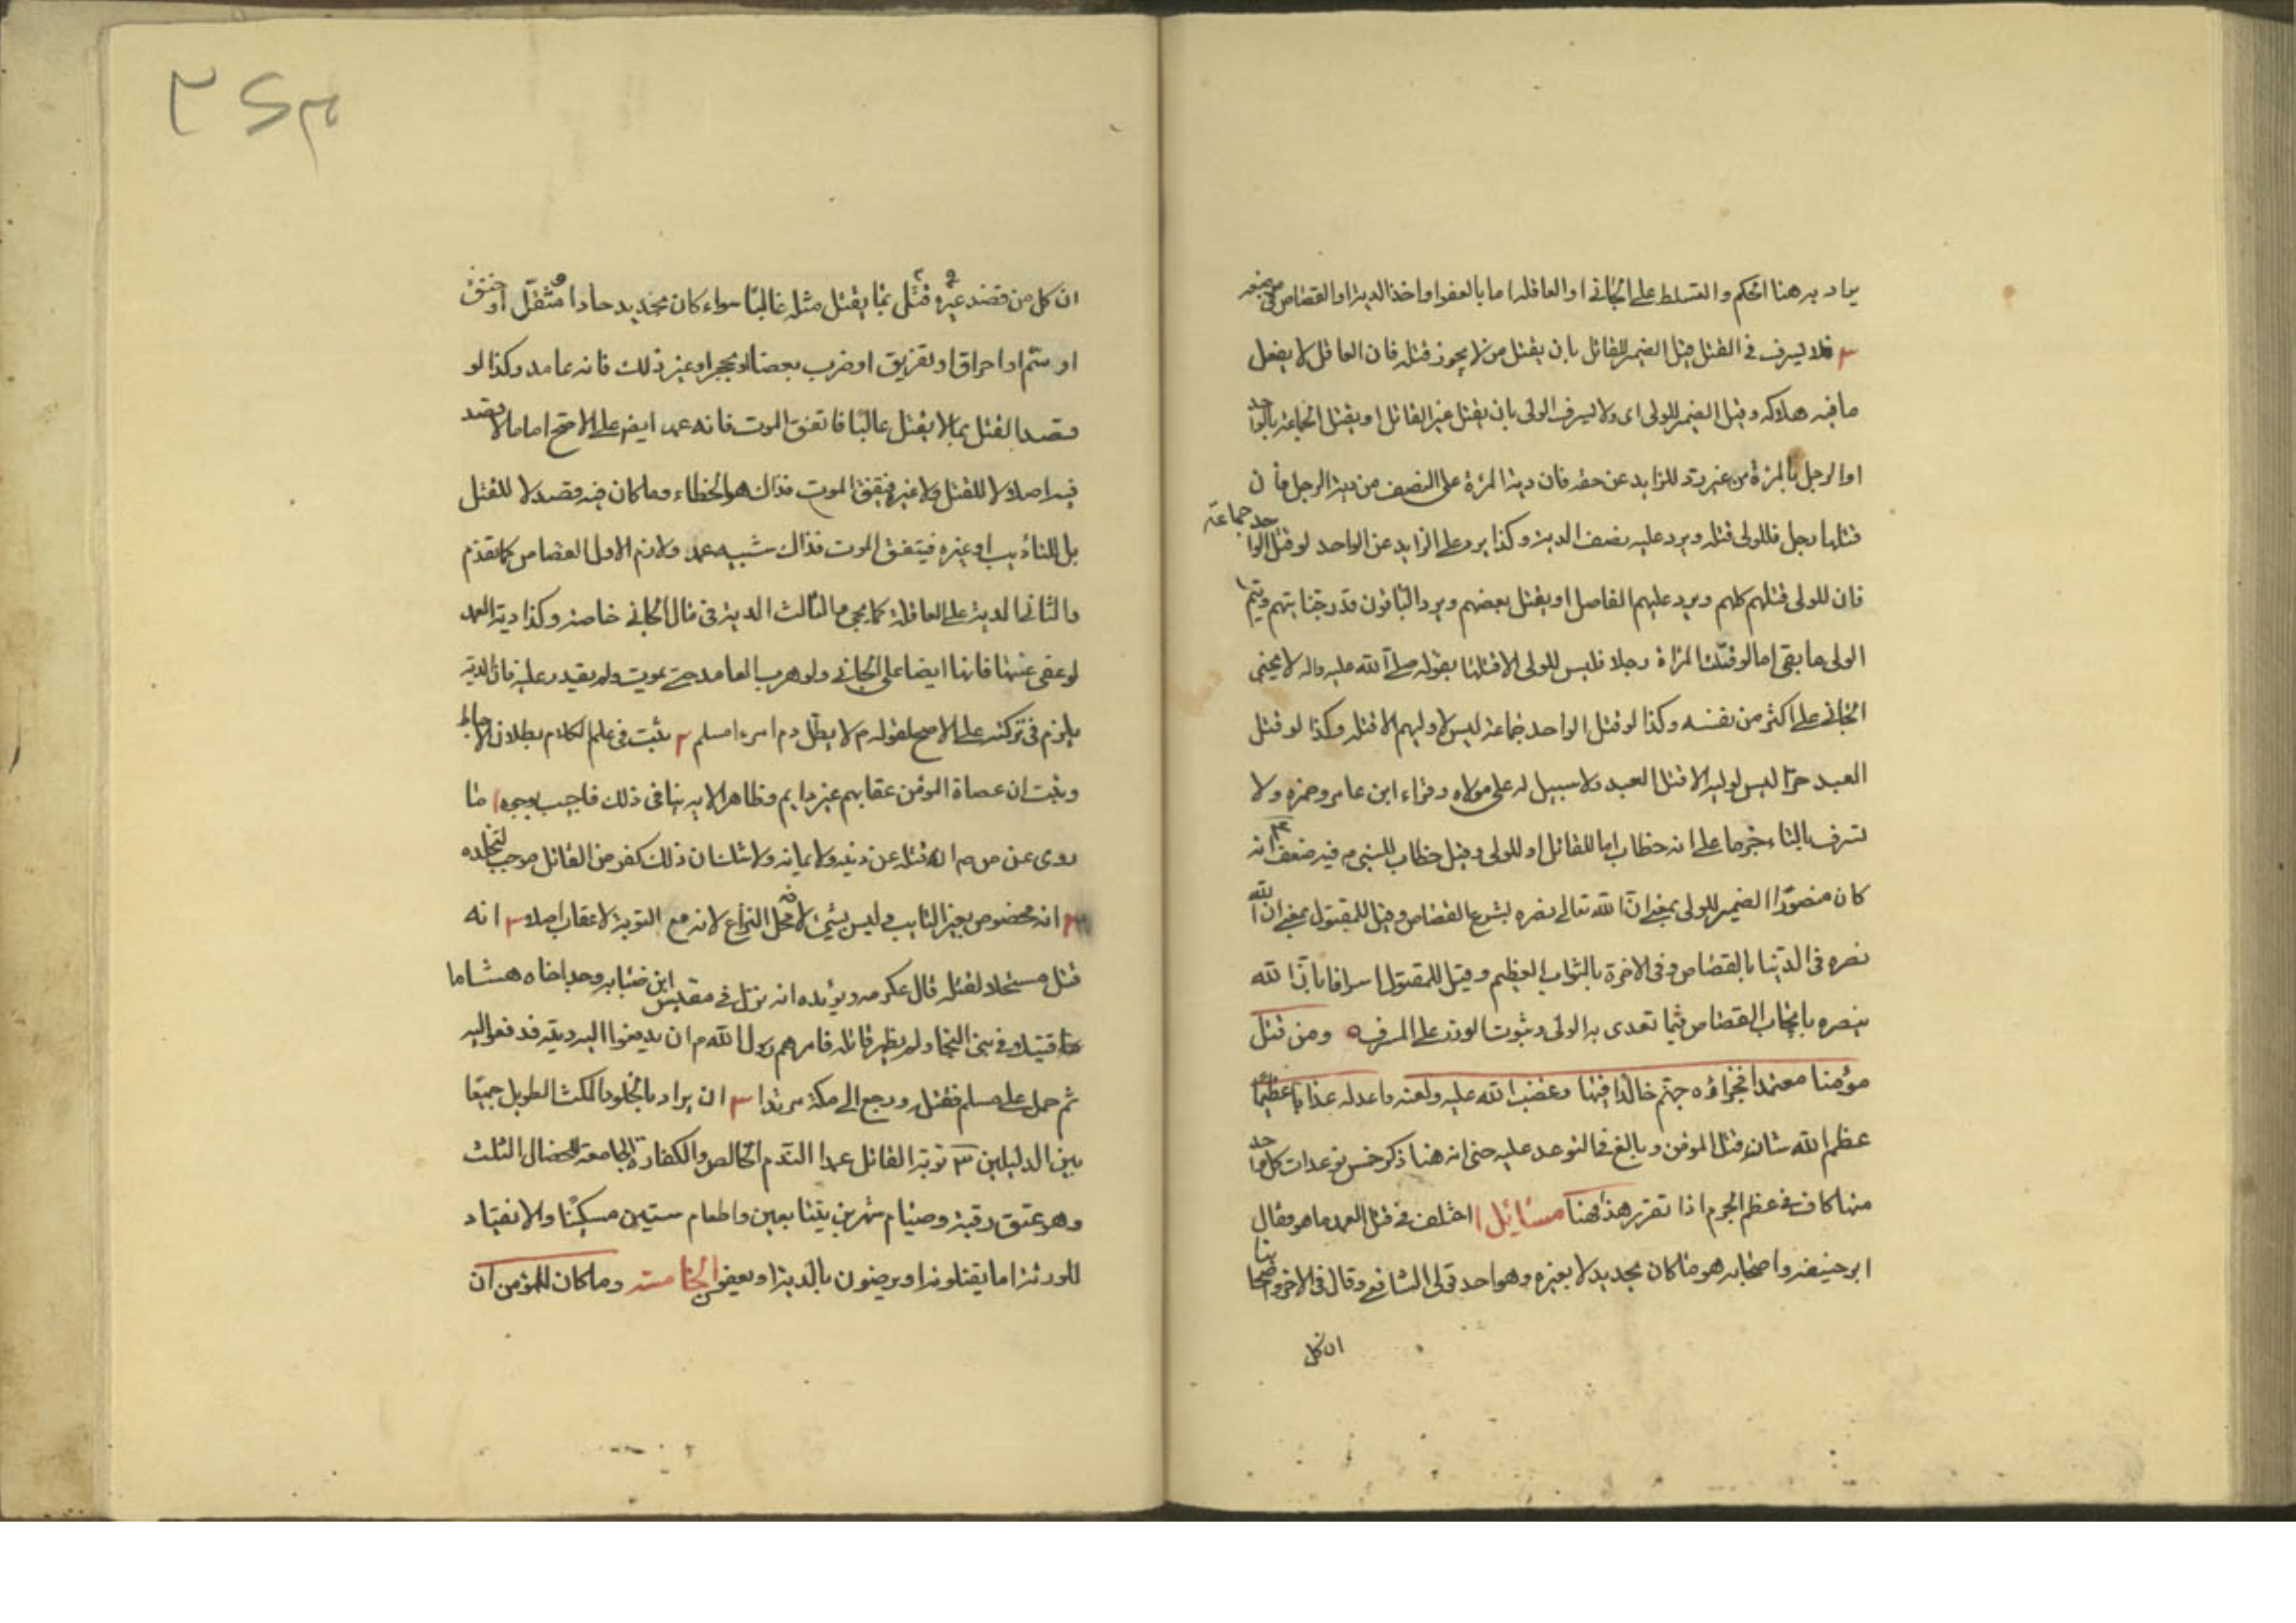 يراد به هنا الحكم والتسلط على الجاني او العاقلة اما بالعفو او اخذ الدية او القصاص في
٣ فلا يسرف في القتل قيل الضمير للقاتل بان يقتل من لا يجوز قتله فان العاقل لا يفعل
ما فيه هلاكه وقيل الضمير للولى اى ولا يسرف الولى بان يقتل غير القاتل او يقتل الجماعة بالواحد
او الرجل بالمرئة من غير رد للزايد عن حقه فان دية المرئة على النصف من دية الرجل فان
قتلها رجل فللولى قتله ويرد عليه نصف الدية وكذا يرد على الزايد عن الواحد لو قتل الواحد جماعة
فان للولى قتلهم كلهم ويرد عليهم الفاصل او يقتل بعضهم ويرد الباقون قدر جنايتهم ويتم
الولى ما بقى اما لو قتلت المرأة رجلا فليس للولى الا قتلها بقوله صلى الله عليه واله لا يجنى
الجاني على اكثر من نفسه وكذا لو قتل الواحد جماعة ليس لاوليهم الا قتله وكذا لو قتل
العبد حرا ليس لوليه الا قتل العبد ولا سبيل له على مولاه وقراء ابن عامر وحمزه ولا
تسرف بالتاء جزما على انه خطاب اما للقاتل او للولى وقيل خطاب للنبى م وفيه ضعف ٣ انه
كان منصورا الضمير للولى بمعنى ان الله تعالى نصره بشرع القصاص وقيل للمقتول بمعنى ان الله
نصره في الدنيا بالقصاص وفى الاخرة بالثواب العظيم وقيل للمقتول اسرافا بان الله
ينصره بايجاب القصاص فيما تعدى به الولى وثبوت الوزر على المسرف ومن قتل
مؤمنا معتمدا فجزاؤه جهنم خالدا فيها وغضب الله عليه ولعنه واعد له عذابا عظيما
عظم الله شان قتل المؤمن وبالغ في التوعد عليه حتى انه هنا ذكر خمس توعدات كل واحد
منها كاف في عظم الجرم اذا تقرر هذا فهنا مسائل ا اختلف في قتل العمد ما هو فقال
ابو حنيفه واصحابه هو ما كان بحديد لا بغيره وهو احد قولى الشافعى وقال في الاخر واصحابنا
ان كل
ان كل من قصد غيره قتل بما يقتل مثله غالبا سواء كان بحديد حادا ومثقل او خنق
او سم او احراق او تغريق او ضرب بعصا او بحجر او غير ذلك فانه عامد وكذا لو
قصد القتل بما لا يقتل غالبا فاتفق الموت فانه عمد ايضا على الاصح اما ما لا قصد
فيه اصلا لا للقتل ولا غيره فيتفق الموت فذاك هو الخطاء وما كان فيه قصد لا للقتل
بل للتاديب او غيره فيتفق الموت فذاك شبيه عمد ولازم الاول القصاص كما تقدم
والثاني الدية على العاقلة كما يجى والثالث الدية في مال الجاني خاصة وكذا دية العمد
لو عفى عنها فانها ايضا على الجاني ولو هرب العامد حتى يموت ولم يقدر عليه فان الدية
يلزم في تركته على الاصح لقوله م لا يطل دم امرء مسلم ٢ يثبت في علم الكلام بطلان الاحباط
ويثبت ان عصاة المومن عقابهم غير دايم وظاهر الاية ينافى ذلك فاجيب بوجوه ا ما
روى عن ص م ان قتله عن دينه ولايمانه ولا شك ان ذلك كفر من القاتل موجب لتخليده
٢ انه مخصوص بغير التايب وليس بشيء لانه محل النزاع لانه مع التوبة لا عقاب اصلا ٣ انه
قتل مستحلا لقتله قال عكرمه ويؤيده انه نزل في مقيس ابن ضبابه وجد اخاه هشاما
قتيلا في بنى النجار ولم يظهر قاتله فامرهم رسول الله م ان يدفعوا اليه ديته فدفعوا اليه
ثم حمل على مسلم فقتله ورجع الى مكة مرتدا ٣ ان يراد بالخلود المكث الطويل جمعا
بين الدليلين ٣ توبة القاتل عمدا الندم الخالص والكفارة الجامعة للخصال الثلث
وهو عتق رقبة وصيام شهرين يتتابعين واطعام ستين مسكينا والانقياد
للورثة اما يقتلونه او يرضون بالدية او يعفو الخامسة وما كان للمؤمن ان